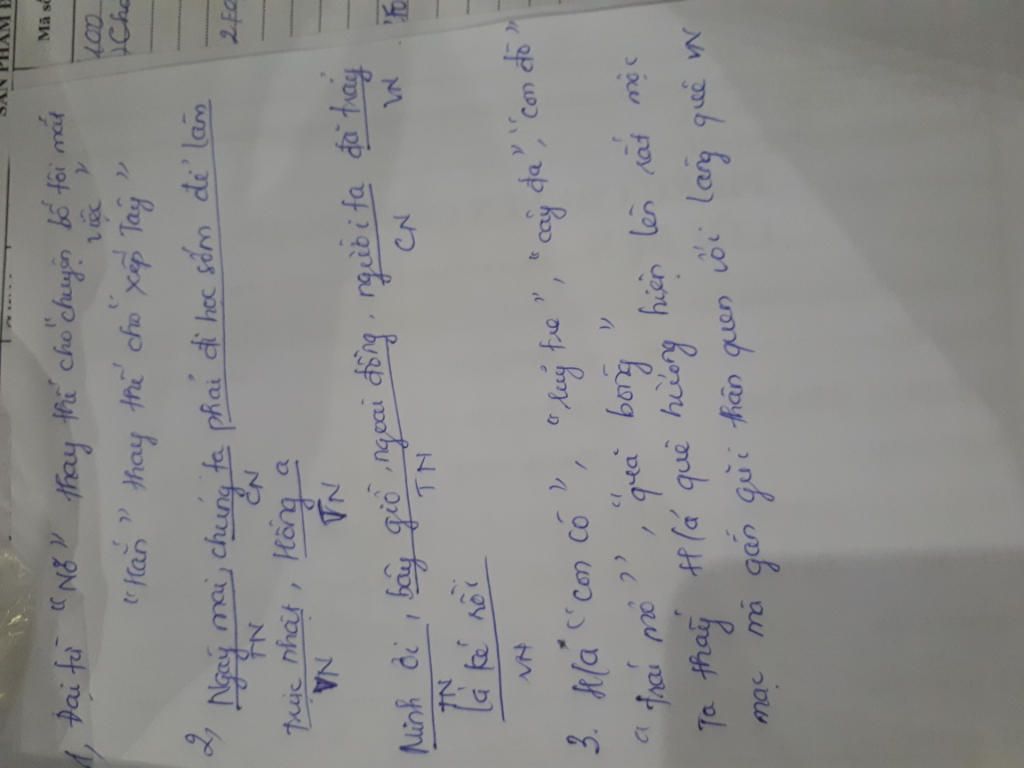 SẢN PHẨM
Mã số
1, Đại từ "Nó" thay thế cho "chuyện bố tôi mất
việc"
"Hắn" thay thế cho "xếp Tây"
2, Ngày mai, chúng ta phải đi học sớm để làm
TN CN
trực nhật, Hồng ạ
VN TN
Minh ơi, bây giờ, ngoài đồng, người ta đã thấy
TN TN CN VN
lá ké nồi
VN
3. H/a "con cò", "luỹ tre", "cây đa", "con đò"
"quả bòng"
Ta thấy H/á quê hương hiện lên rất mộc
mạc mà gần gũi thân quen với làng quê VN